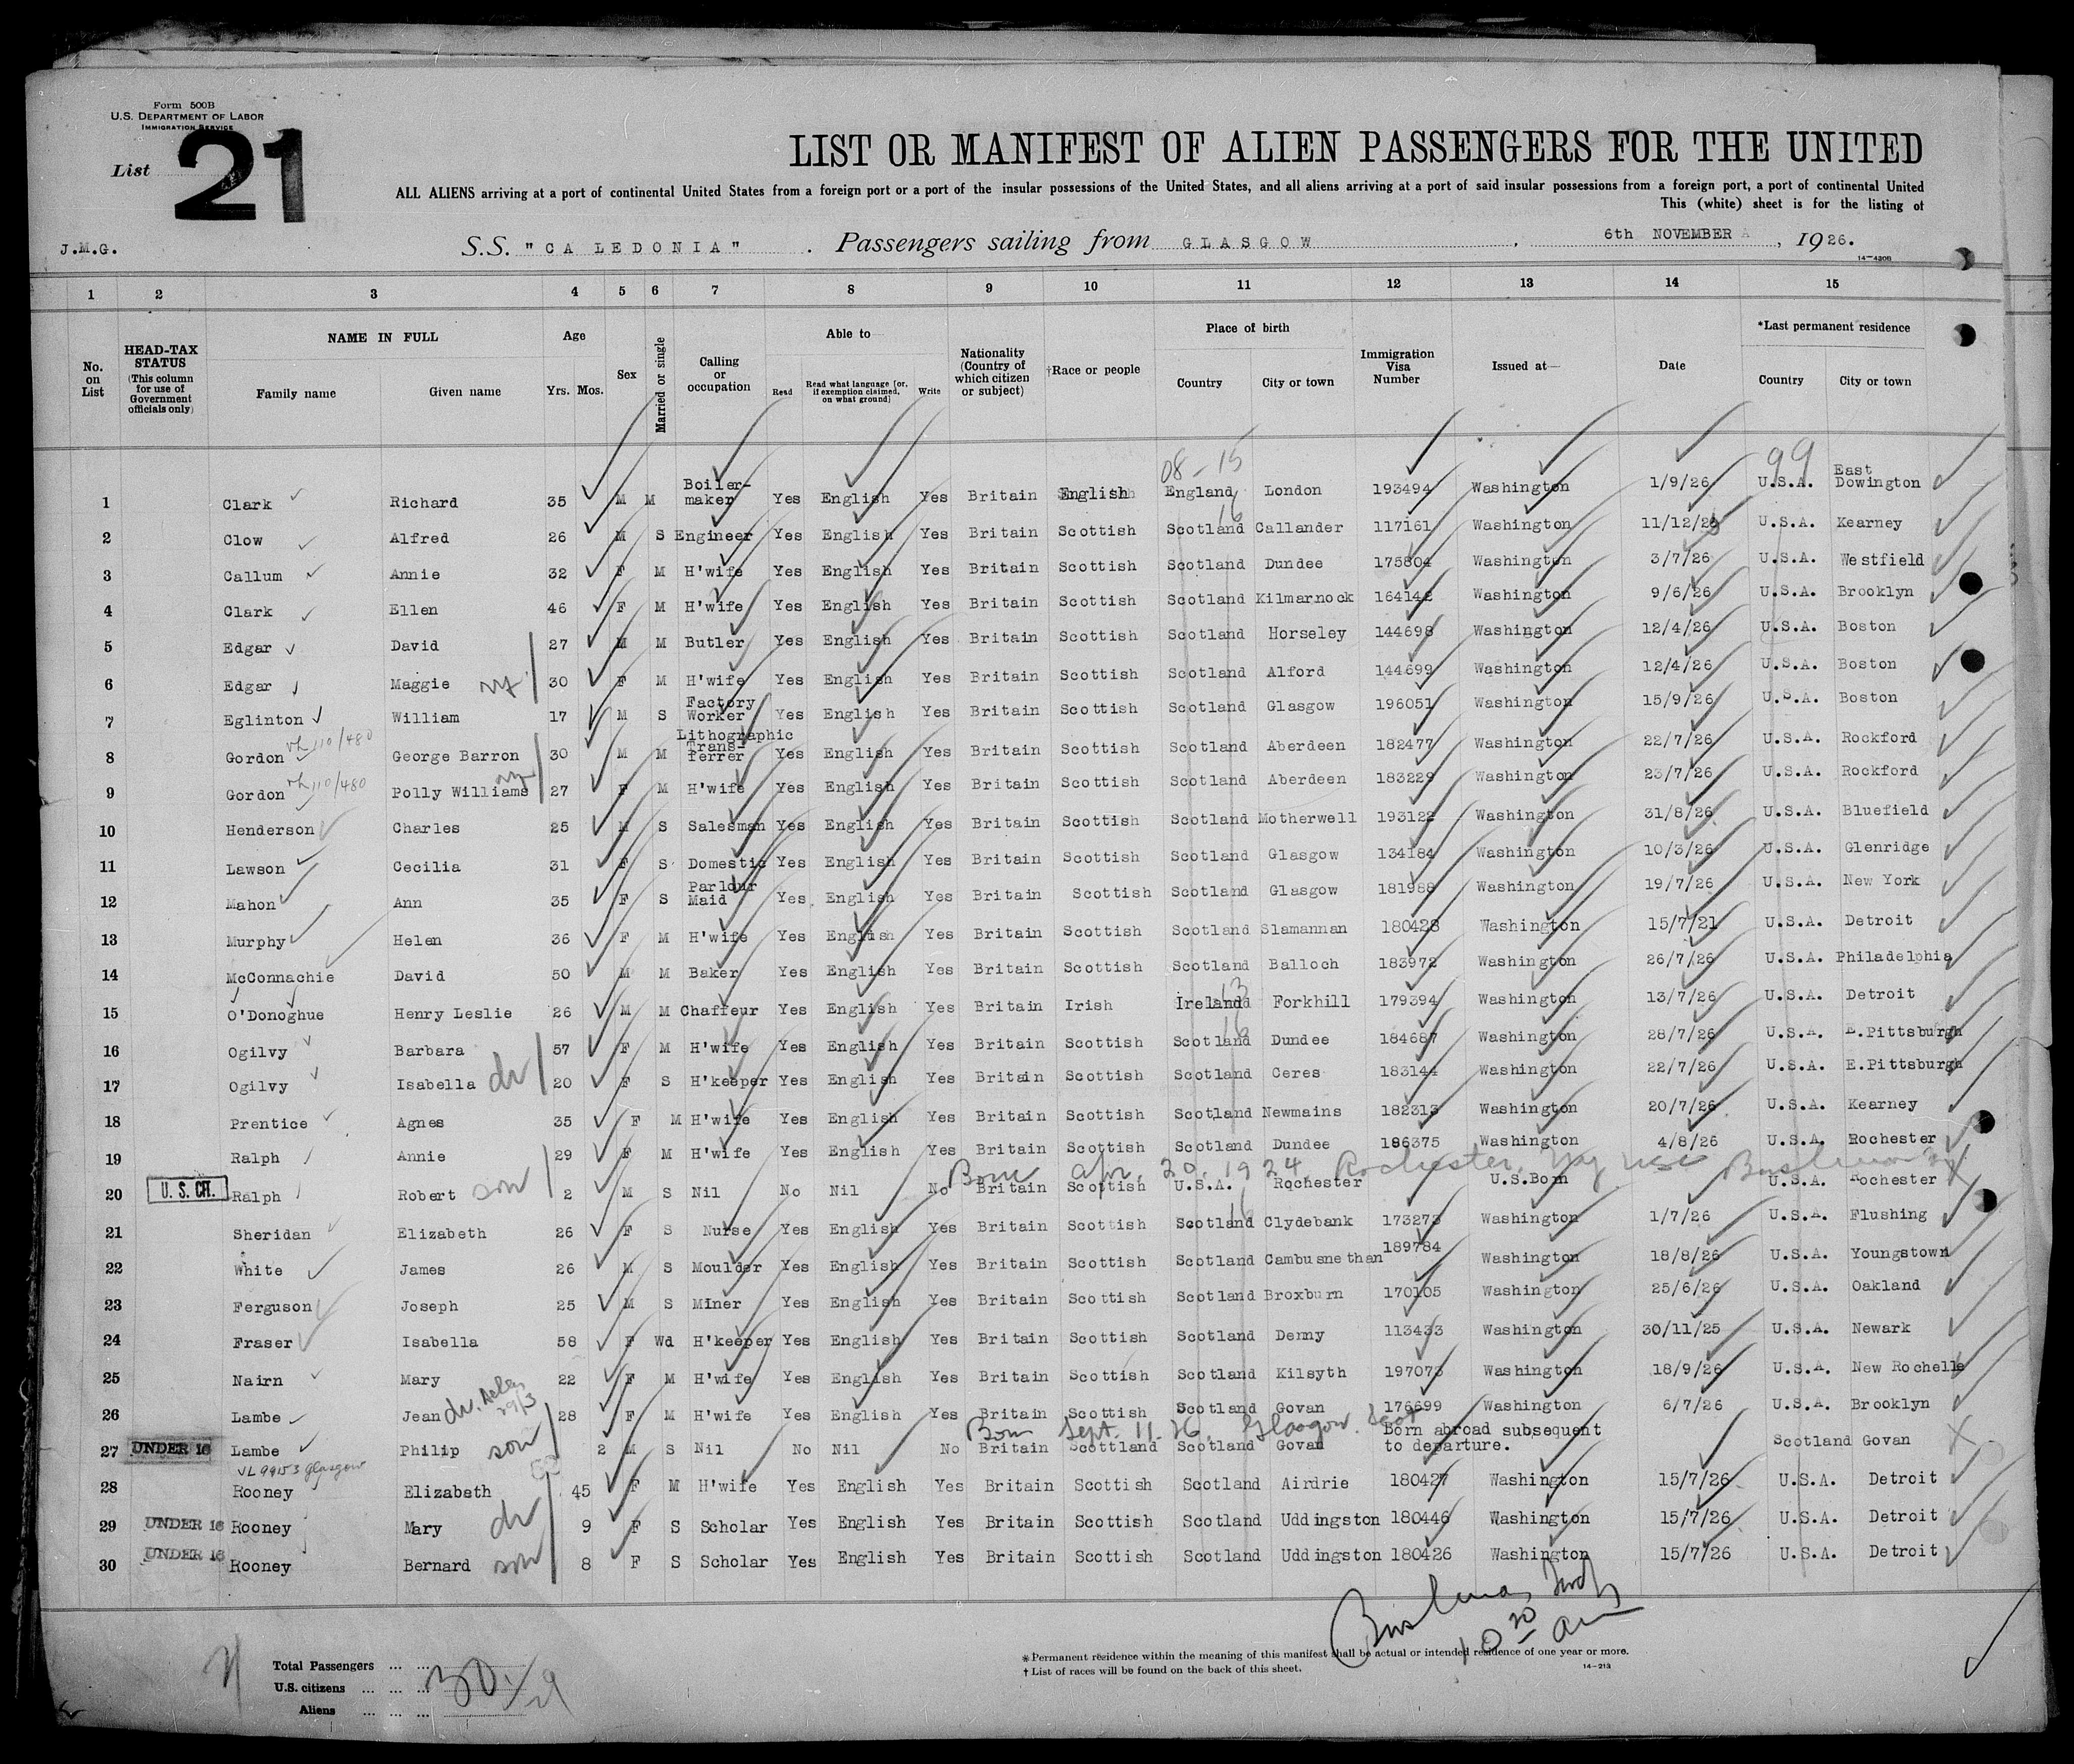 Form 500B
U.S. DEPARTMENT OF LABOR
IMMIGRATION SERVICE
List 21
LIST OR MANIFEST OF ALIEN PASSENGERS FOR THE UNITED
ALL ALIENS arriving at a port of continental United States from a foreign port or a port of the insular possessions of the United States, and all aliens arriving at a port of said insular possessions from a foreign port, a port of continental United
This (white) sheet is for the listing of
J.M.G.
S.S. "CALEDONIA" . Passengers sailing from GLASGOW , 6th NOVEMBER , 1926.
14-430B
1 2 3 4 5 6 7 8 9 10 11 12 13 14 15
No. on List
HEAD-TAX STATUS (This column for use of Government officials only)
NAME IN FULL
Family name
Given name
Age
Yrs. Mos.
Sex
Married or single
Calling or occupation
Able to
Read
Read what language [or, if exemption claimed, on what ground]
Write
Nationality (Country of which citizen or subject)
†Race or people
Place of birth
Country
City or town
Immigration Visa Number
Issued at—
Date
*Last permanent residence
Country
City or town
08-15
99
1 Clark Richard 35 M M Boiler-maker Yes English Yes Britain English England London 193494 Washington 1/9/26 U.S.A. East Dowington
16
2 Clow Alfred 26 M S Engineer Yes English Yes Britain Scottish Scotland Callander 117161 Washington 11/12/25 U.S.A. Kearney
3 Callum Annie 32 F M H'wife Yes English Yes Britain Scottish Scotland Dundee 175804 Washington 3/7/26 U.S.A. Westfield
4 Clark Ellen 46 F M H'wife Yes English Yes Britain Scottish Scotland Kilmarnock 164142 Washington 9/6/26 U.S.A. Brooklyn
5 Edgar David 27 M M Butler Yes English Yes Britain Scottish Scotland Horseley 144698 Washington 12/4/26 U.S.A. Boston
6 Edgar Maggie 30 F M H'wife Yes English Yes Britain Scottish Scotland Alford 144699 Washington 12/4/26 U.S.A. Boston
7 Eglinton William 17 M S Factory Worker Yes English Yes Britain Scottish Scotland Glasgow 196051 Washington 15/9/26 U.S.A. Boston
110/480
8 Gordon George Barron 30 M M Lithographic Trans-ferrer Yes English Yes Britain Scottish Scotland Aberdeen 182477 Washington 22/7/26 U.S.A. Rockford
110/480
9 Gordon Polly Williams 27 F M H'wife Yes English Yes Britain Scottish Scotland Aberdeen 183229 Washington 23/7/26 U.S.A. Rockford
10 Henderson Charles 25 M S Salesman Yes English Yes Britain Scottish Scotland Motherwell 193122 Washington 31/8/26 U.S.A. Bluefield
11 Lawson Cecilia 31 F S Domestic Yes English Yes Britain Scottish Scotland Glasgow 134184 Washington 10/3/26 U.S.A. Glenridge
12 Mahon Ann 35 F S Parlour Maid Yes English Yes Britain Scottish Scotland Glasgow 181988 Washington 19/7/26 U.S.A. New York
13 Murphy Helen 36 F M H'wife Yes English Yes Britain Scottish Scotland Slamannan 180428 Washington 15/7/21 U.S.A. Detroit
14 McConnachie David 50 M M Baker Yes English Yes Britain Scottish Scotland Balloch 183972 Washington 26/7/26 U.S.A. Philadelphia
13
15 O'Donoghue Henry Leslie 26 M M Chaffeur Yes English Yes Britain Irish Ireland Forkhill 179394 Washington 13/7/26 U.S.A. Detroit
16
16 Ogilvy Barbara 57 F M H'wife Yes English Yes Britain Scottish Scotland Dundee 184687 Washington 28/7/26 U.S.A. E.Pittsburgh
17 Ogilvy Isabella dr 20 F S H'keeper Yes English Yes Britain Scottish Scotland Ceres 183144 Washington 22/7/26 U.S.A. E.Pittsburgh
18 Prentice Agnes 35 F M H'wife Yes English Yes Britain Scottish Scotland Newmains 182313 Washington 20/7/26 U.S.A. Kearney
19 Ralph Annie 29 F M H'wife Yes English Yes Britain Scottish Scotland Dundee 186375 Washington 4/8/26 U.S.A. Rochester
Born Apr. 20. 1924 Rochester, NY
20 U.S. CIT. Ralph Robert son 2 M S Nil No Nil No Britain Scottish U.S.A. Rochester U.S.Born U.S.A. Rochester
16
21 Sheridan Elizabeth 26 F S Nurse Yes English Yes Britain Scottish Scotland Clydebank 173273 Washington 1/7/26 U.S.A. Flushing
22 White James 26 M S Moulder Yes English Yes Britain Scottish Scotland Cambusnethan 189784 Washington 18/8/26 U.S.A. Youngstown
23 Ferguson Joseph 25 M S MIner Yes English Yes Britain Scottish Scotland Broxburn 170105 Washington 25/6/26 U.S.A. Oakland
24 Fraser Isabella 58 F Wd H'keeper Yes English Yes Britain Scottish Scotland Denny 113433 Washington 30/11/25 U.S.A. Newark
25 Nairn Mary 22 F M H'wife Yes English Yes Britain Scottish Scotland Kilsyth 197073 Washington 18/9/26 U.S.A. New Rochelle
26 Lambe Jean dr. 29/3 28 F M H'wife Yes English Yes Britain Scottish Scotland Govan 176699 Washington 6/7/26 U.S.A. Brooklyn
Born Sept. 11. 26. Glasgow. Scot
27 UNDER 16 Lambe Philip son 2 M S Nil No Nil No Britain Scottland Scotland Govan Born abroad subsequent to departure. Scotland Govan
VL 99153 Glasgow
28 Rooney Elizabeth 45 F M H'wife Yes English Yes Britain Scottish Scotland Airdrie 180427 Washington 15/7/26 U.S.A. Detroit
29 UNDER 16 Rooney Mary dr 9 F S Scholar Yes English Yes Britain Scottish Scotland Uddingston 180446 Washington 15/7/26 U.S.A. Detroit
30 UNDER 16 Rooney Bernard son 8 F S Scholar Yes English Yes Britain Scottish Scotland Uddingston 180426 Washington 15/7/26 U.S.A. Detroit
10 20 am
Total Passengers ... ... 30
U.S. citizens ... ... ... 1/29
Aliens ... ... ...
* Permanent residence within the meaning of this manifest shall be actual or intended residence of one year or more.
† List of races will be found on the back of this sheet.
14-213